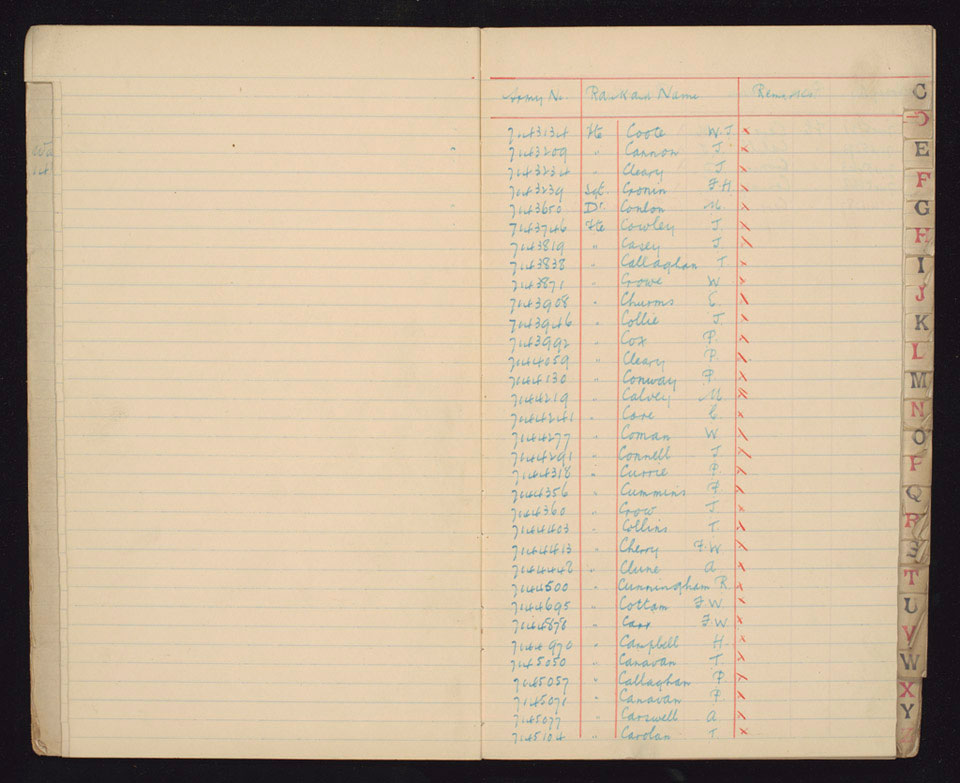 Army No. Rank and Name Remarks
7143134 Pte Coote W.J. x
7143209 " Cannon J. x
7143234 " Cleary J x
7143239 Sgt. Cronin F.H. x
7143650 Dr. Conlon M. x
7143746 Pte Cowley J. x
7143819 " Casey J. x
7143838 " Callaghan T. x
7143871 " Crowe W x
7143908 " Churms E. x
7143946 " Collie J. x
7143992 " Cox P. x
7144059 " Cleary P. x
7144130 " Conway P. x
7144219 " Calvey M. x
7144241 " C. x
7144277 " Coman W x
7144291 " Connell J x
7144318 " Currie P. x
7144356 " Cummins P. x
7144360 " Crow J. x
7144403 " Collins T. x
7144413 " Cherry F.W. x
7144442 " Clune A x
7144500 " Cunningham R x
7144695 " Cottam F.W. x
7144878 " Carr F.W x
7144970 " Campbell H x
7145050 " Canavan T. x
7145057 " Callaghan P. x
7145071 " Canavan P. x
7145077 " Carswell A x
7145104 " Carolan T x
C
D
E
F
G
H
I
J
K
L
M
N
O
P
Q
R
S
T
U
V
W
X
Y